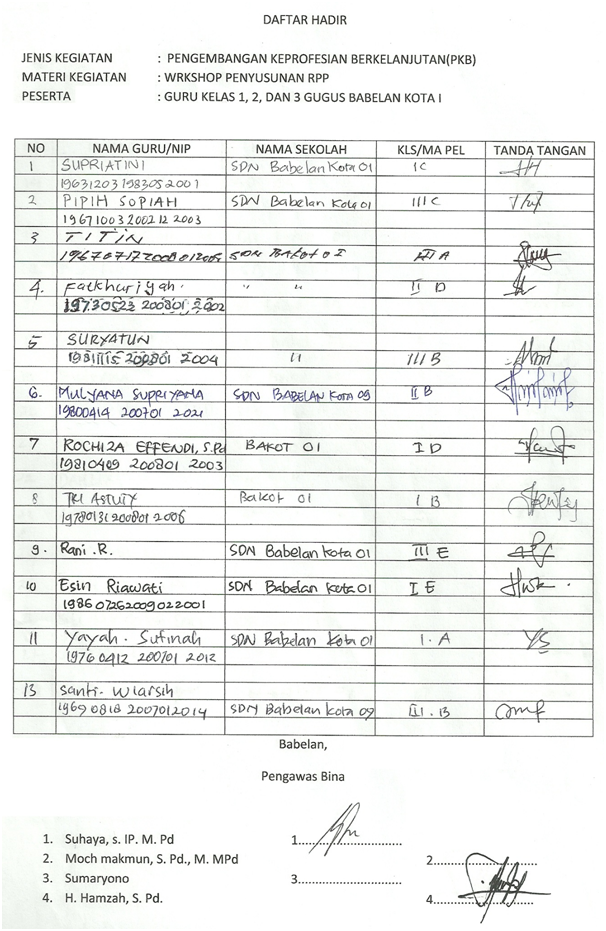 DAFTAR HADIR
JENIS KEGIATAN : PENGEMBANGAN KEPROFESIAN BERKELANJUTAN(PKB)
MATERI KEGIATAN : WRKSHOP PENYUSUNAN RPP
PESERTA : GURU KELAS 1, 2, DAN 3 GUGUS BABELAN KOTA I
NO NAMA GURU/NIP NAMA SEKOLAH KLS/MA PEL TANDA TANGAN
1 SUPRIATINI SDN Babelan Kota 01 IC
19631203 198305 2001
2 PIPIH SOPIAH SDN Babelan Kota 01 III C
19671003 2002 12 2003
3 TITIN
SDN BAKOT 0 I III A
4. Fatkhuriyah. " " II D
19730523 200801 2002
5 SURYATUN
200801 2004 11 III B
6. MULYANA SUPRIYANA SDN BABELAN KOTA 09 II B
19800414 200701 2021
7 ROCHIZA EFFENDI, S.Pd BAKOT 01 I D
19810409 200801 2003
8 TRI ASTUTY Bakot 01 I B
19780131 200801 2006
9. Rani .R. SDN Babelan Kota 01 III E
10 Esin Riawati SDN Babelan Kota 01 I E
198607262009022001
11 Yayah. Sufinah SDN Babelan Kota 01 I. A YS
19760412 200701 2012
13 Santi. Wiarsih
19690818 2007012014 SDN Babelan Kota 09 III. B
Babelan,
Pengawas Bina
1. Suhaya, s. IP. M. Pd 1.....................
2. Moch makmun, S. Pd., M. MPd 2.....................
3. Sumaryono 3.....................
4. H. Hamzah, S. Pd. 4.....................